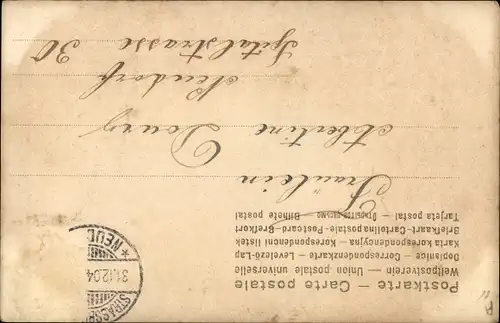 Postkarte – Carte postale
Weltpostverein – Union postale universelle
Dopisnice – Correspondenzkarte – Levelező-Lap
Karta korespondencyjna – Korespondenční lístek
Briefkaart – Cartolina postale – Postcard – Brefkort
Tarjeta postal – Bilhete postal
Fräulein
Albertine Doury
Neudorf
Spitalstrasse 30
STRASSB
31.12.04
* NEUD